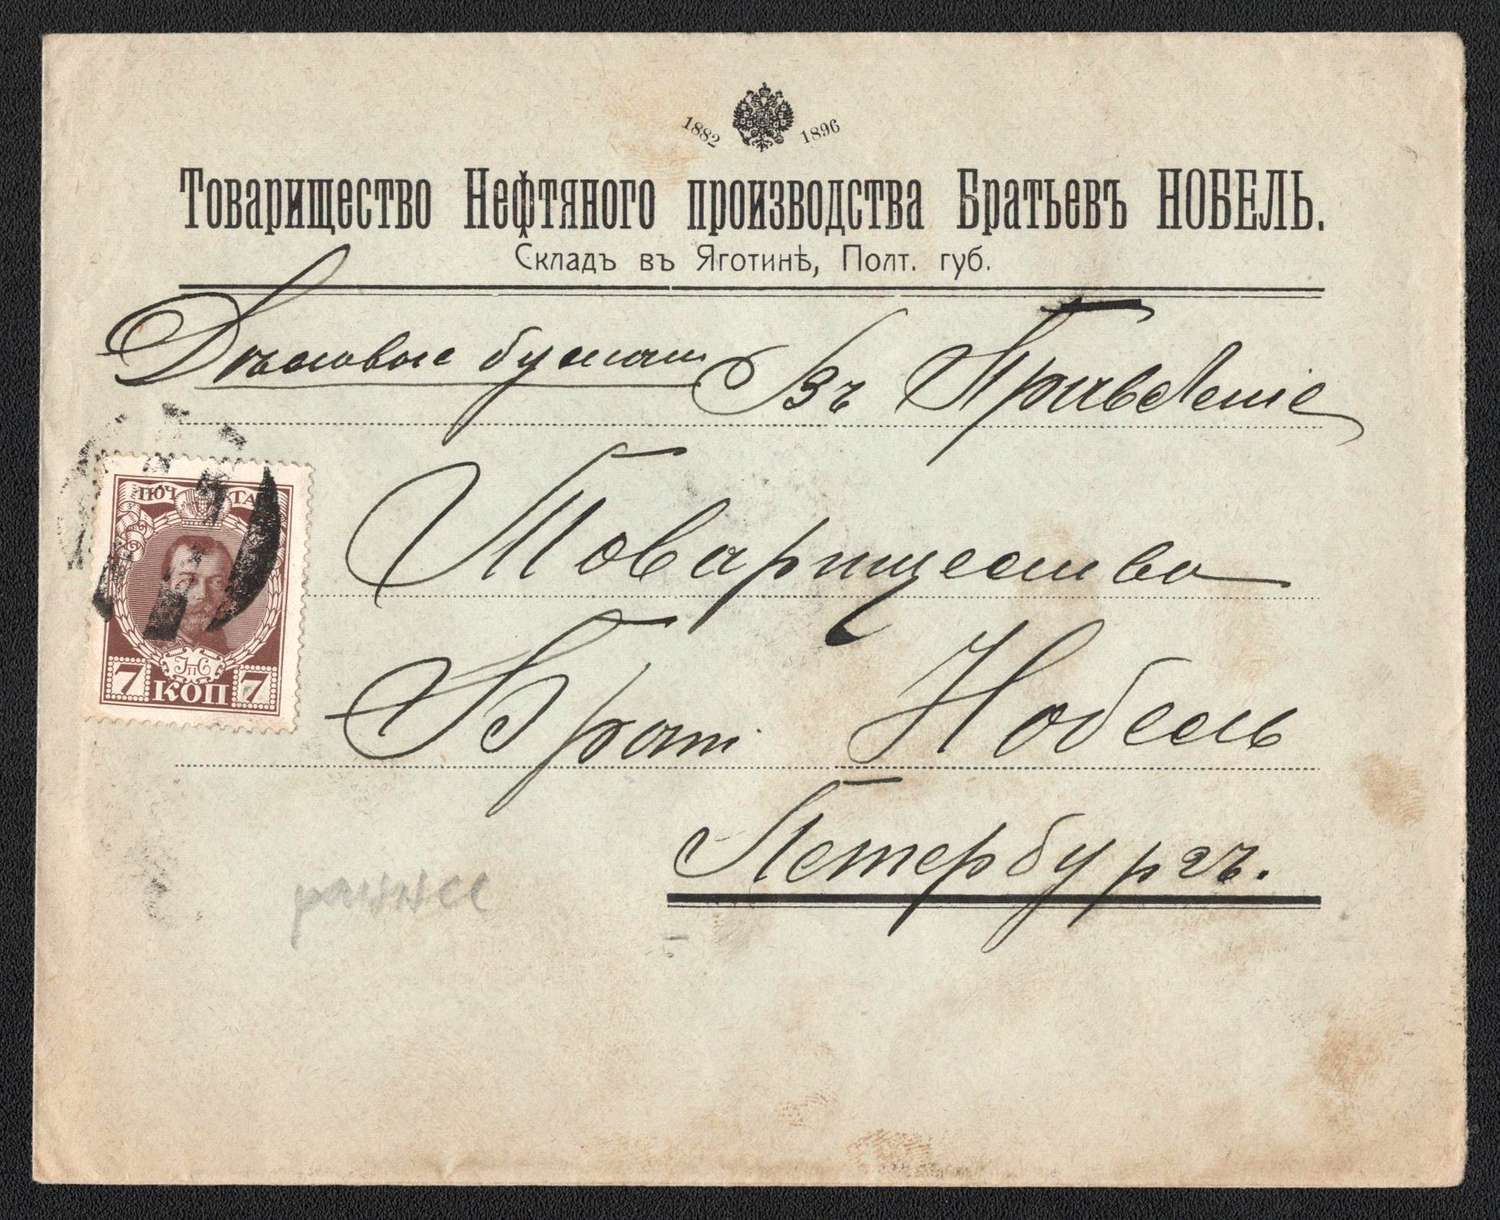 1882 1896
Товарищество Нефтяного производства Братьевъ НОБЕЛЬ.
Складъ въ Яготинѣ, Полт. губ.
Дѣловыя бумаги
Въ Правленіе
Товарищества
Брат. Нобель
Петербургъ.
ПОЧТА
7 КОП 7
раннее